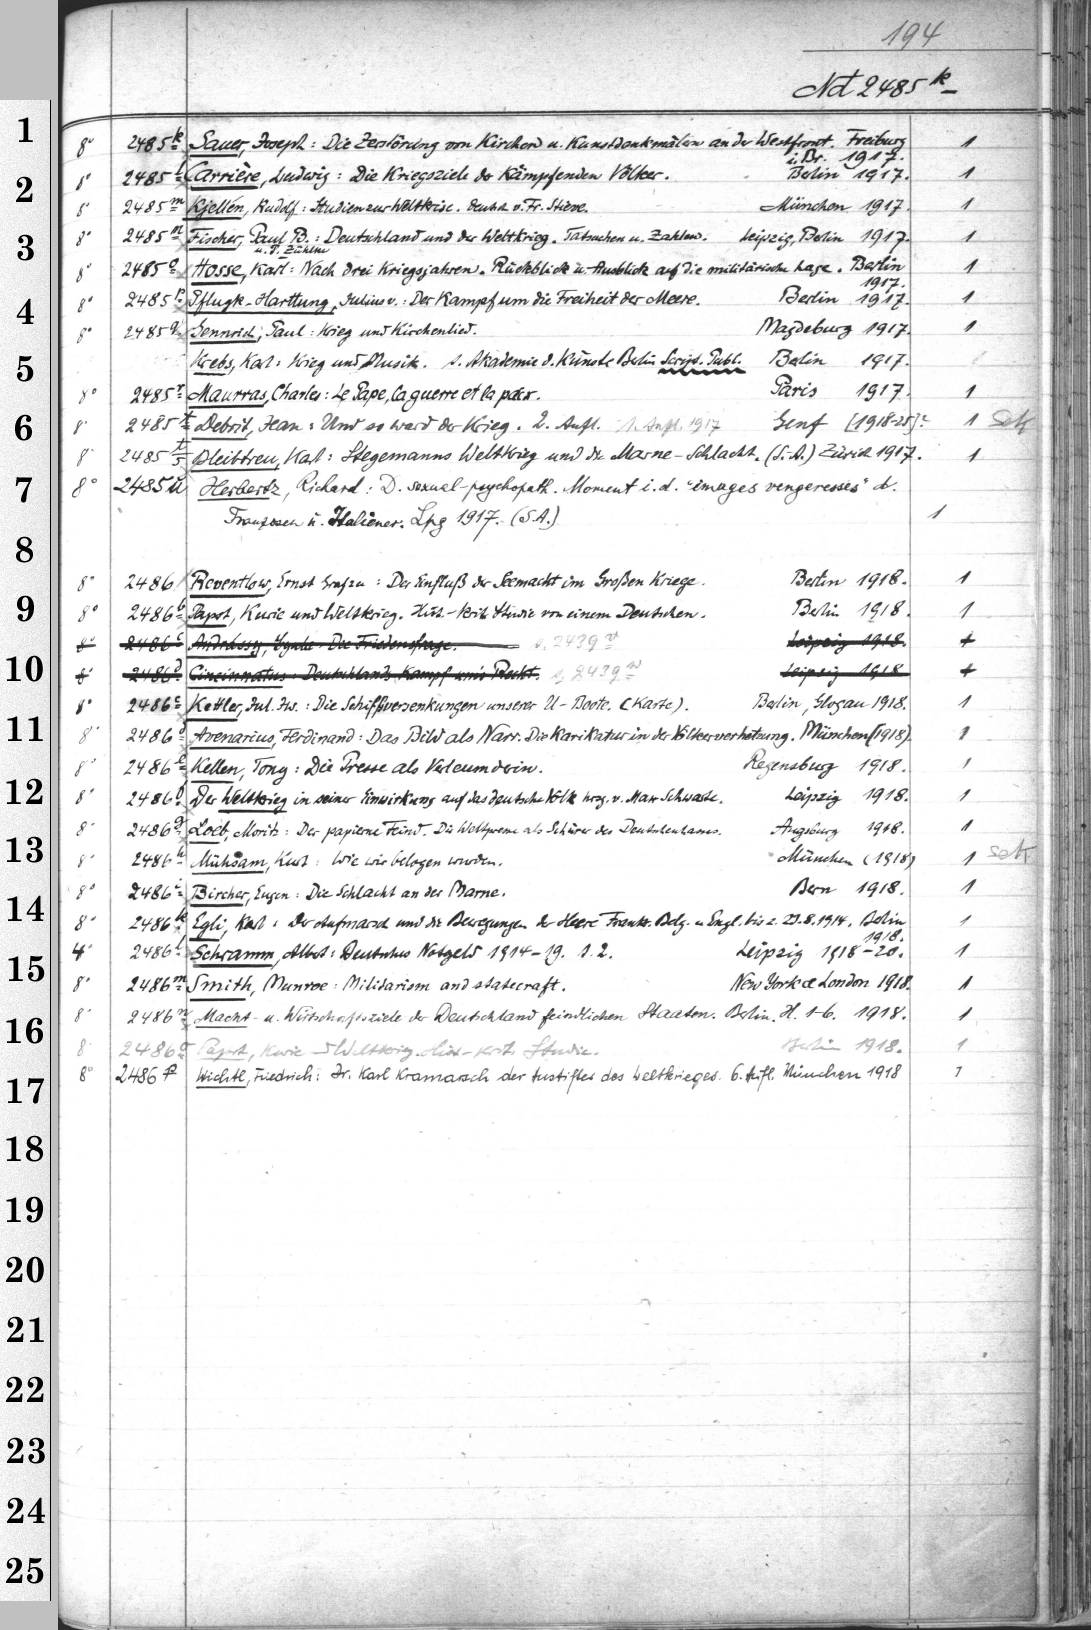 194
Nd 2485 k
1
8° 2485 k Sauer, Joseph: Die Zerstörung von Kirchen u. Kunstdenkmälern an der Westfront. Freiburg 1
i. Br. 1917.
2
8° 2485 l Carrière, Ludwig: Die Kriegsziele der kämpfenden Völker. Berlin 1917. 1
8° 2485 m Kjellén, Rudolf: Studien zur Weltkrise. Deutsch v. Fr. Stieve. München 1917. 1
3
8° 2485 n Fischer, Paul B.: Deutschland und der Weltkrieg. Tatsachen u. Zahlen. Leipzig, Berlin 1917. 1
u. P. Zühlke
8° 2485 o Hosse, Karl: Nach drei Kriegsjahren. Rückblick u. Ausblick auf die militärische Lage. Berlin 1
1917.
4
8° 2485 p Pflugk-Harttung, Julius v.: Der Kampf um die Freiheit der Meere. Berlin 1917. 1
8° 2485 q Gennrich, Paul: Krieg und Kirchenlied. Magdeburg 1917. 1
5
Krebs, Karl: Krieg und Musik. s. Akademie d. Künste Berlin Script. Publ. Berlin 1917.
8° 2485 r Maurras, Charles: Le Pape, la guerre et la paix. Paris 1917. 1
6
8° 2485 Debrit, Jean: Und so ward der Krieg. 2. Aufl. 1. Aufl. 1917 Genf [1918-25]? 1 Sek
8° 2485 Bleibtreu, Karl: Stegemanns Weltkrieg und die Marne-Schlacht. (S.A.) Zürich 1917. 1
7
8° 2485 u Herbertz, Richard: D. sexual-psychopath. Moment i. d. "images vengeresses" d.
Franzosen u. Italiener. Lpg 1917. (S.A.) 1
8
8° 2486 Reventlow, Ernst Grafzu: Der Einfluß der Seemacht im Großen Kriege. Berlin 1918. 1
9
8° 2486 b Papst, Kurie und Weltkrieg. Hist.-krit. Studie von einem Deutschen. Berlin 1918. 1
8° 2486 c Andrássy, Gyula: Die Friedensfrage. s. 2439 v Leipzig 1918. 1
10
8° 2486 d Cincinnatus: Deutschlands Kampf ums Recht. s. 2439 w Leipzig 1918 1
8° 2486 c Kettler, Jul. Iw.: Die Schiffsversenkungen unserer U-Boote. (Karte). Berlin, Glogau 1918. 1
11
8° 2486 d Avenarius, Ferdinand: Das Bild als Narr. Die Karikatur in der Völkerverhetzung. München (1918). 1
8° 2486 e Kellen, Tony: Die Presse als Verleumderin. Regensburg 1918. 1
12
8° 2486 f Der Weltkrieg in seiner Einwirkung auf das deutsche Volk hrsg. v. Max Schwarte. Leipzig 1918. 1
8° 2486 g Loeb, Moritz: Der papierne Feind. Die Weltpresse als Schürer des Deutschenhasses. Augsburg 1918. 1
13
8° 2486 h Mühsam, Kurt: Wie wir belogen wurden. München (1918) 1 sek
8° 2486 i Bircher, Eugen: Die Schlacht an der Marne. Bern 1918. 1
14
8° 2486 k Egli, Karl: Der Aufmarsch und die Bewegungen der Heere Frankr. Belg. u. Engl. bis z. 23.8.1914. Berlin 1
1918.
4° 2486 l Schramm, Albert: Deutsches Notgeld 1914-19. 1. 2. Leipzig 1918-20. 1
15
8° 2486 m Smith, Munroe: Militarism and statecraft. New York & London 1918. 1
8° 2486 n Macht- u. Wirtschaftsziele der Deutschland feindlichen Staaten. Berlin. H. 1-6. 1918. 1
16
8° 2486 o Papst, Kurie u Weltkrieg. Hist-krit. Studie. Berlin 1918. 1
8° 2486 p Wichtl, Friedrich: Dr. Karl Kramarsch der Anstifter des Weltkrieges. 6. Aufl. München 1918 1
17
18
19
20
21
22
23
24
25